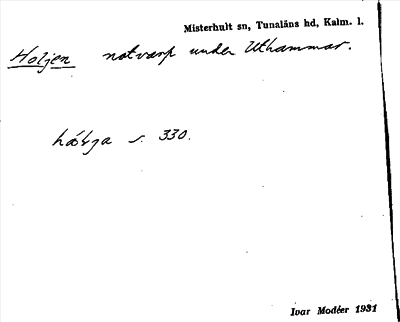 Misterhult sn, Tunaläns hd, Kalm. l.
Holjen notvarp under Uthammar.
s. 330.
Ivar Modéer 1931